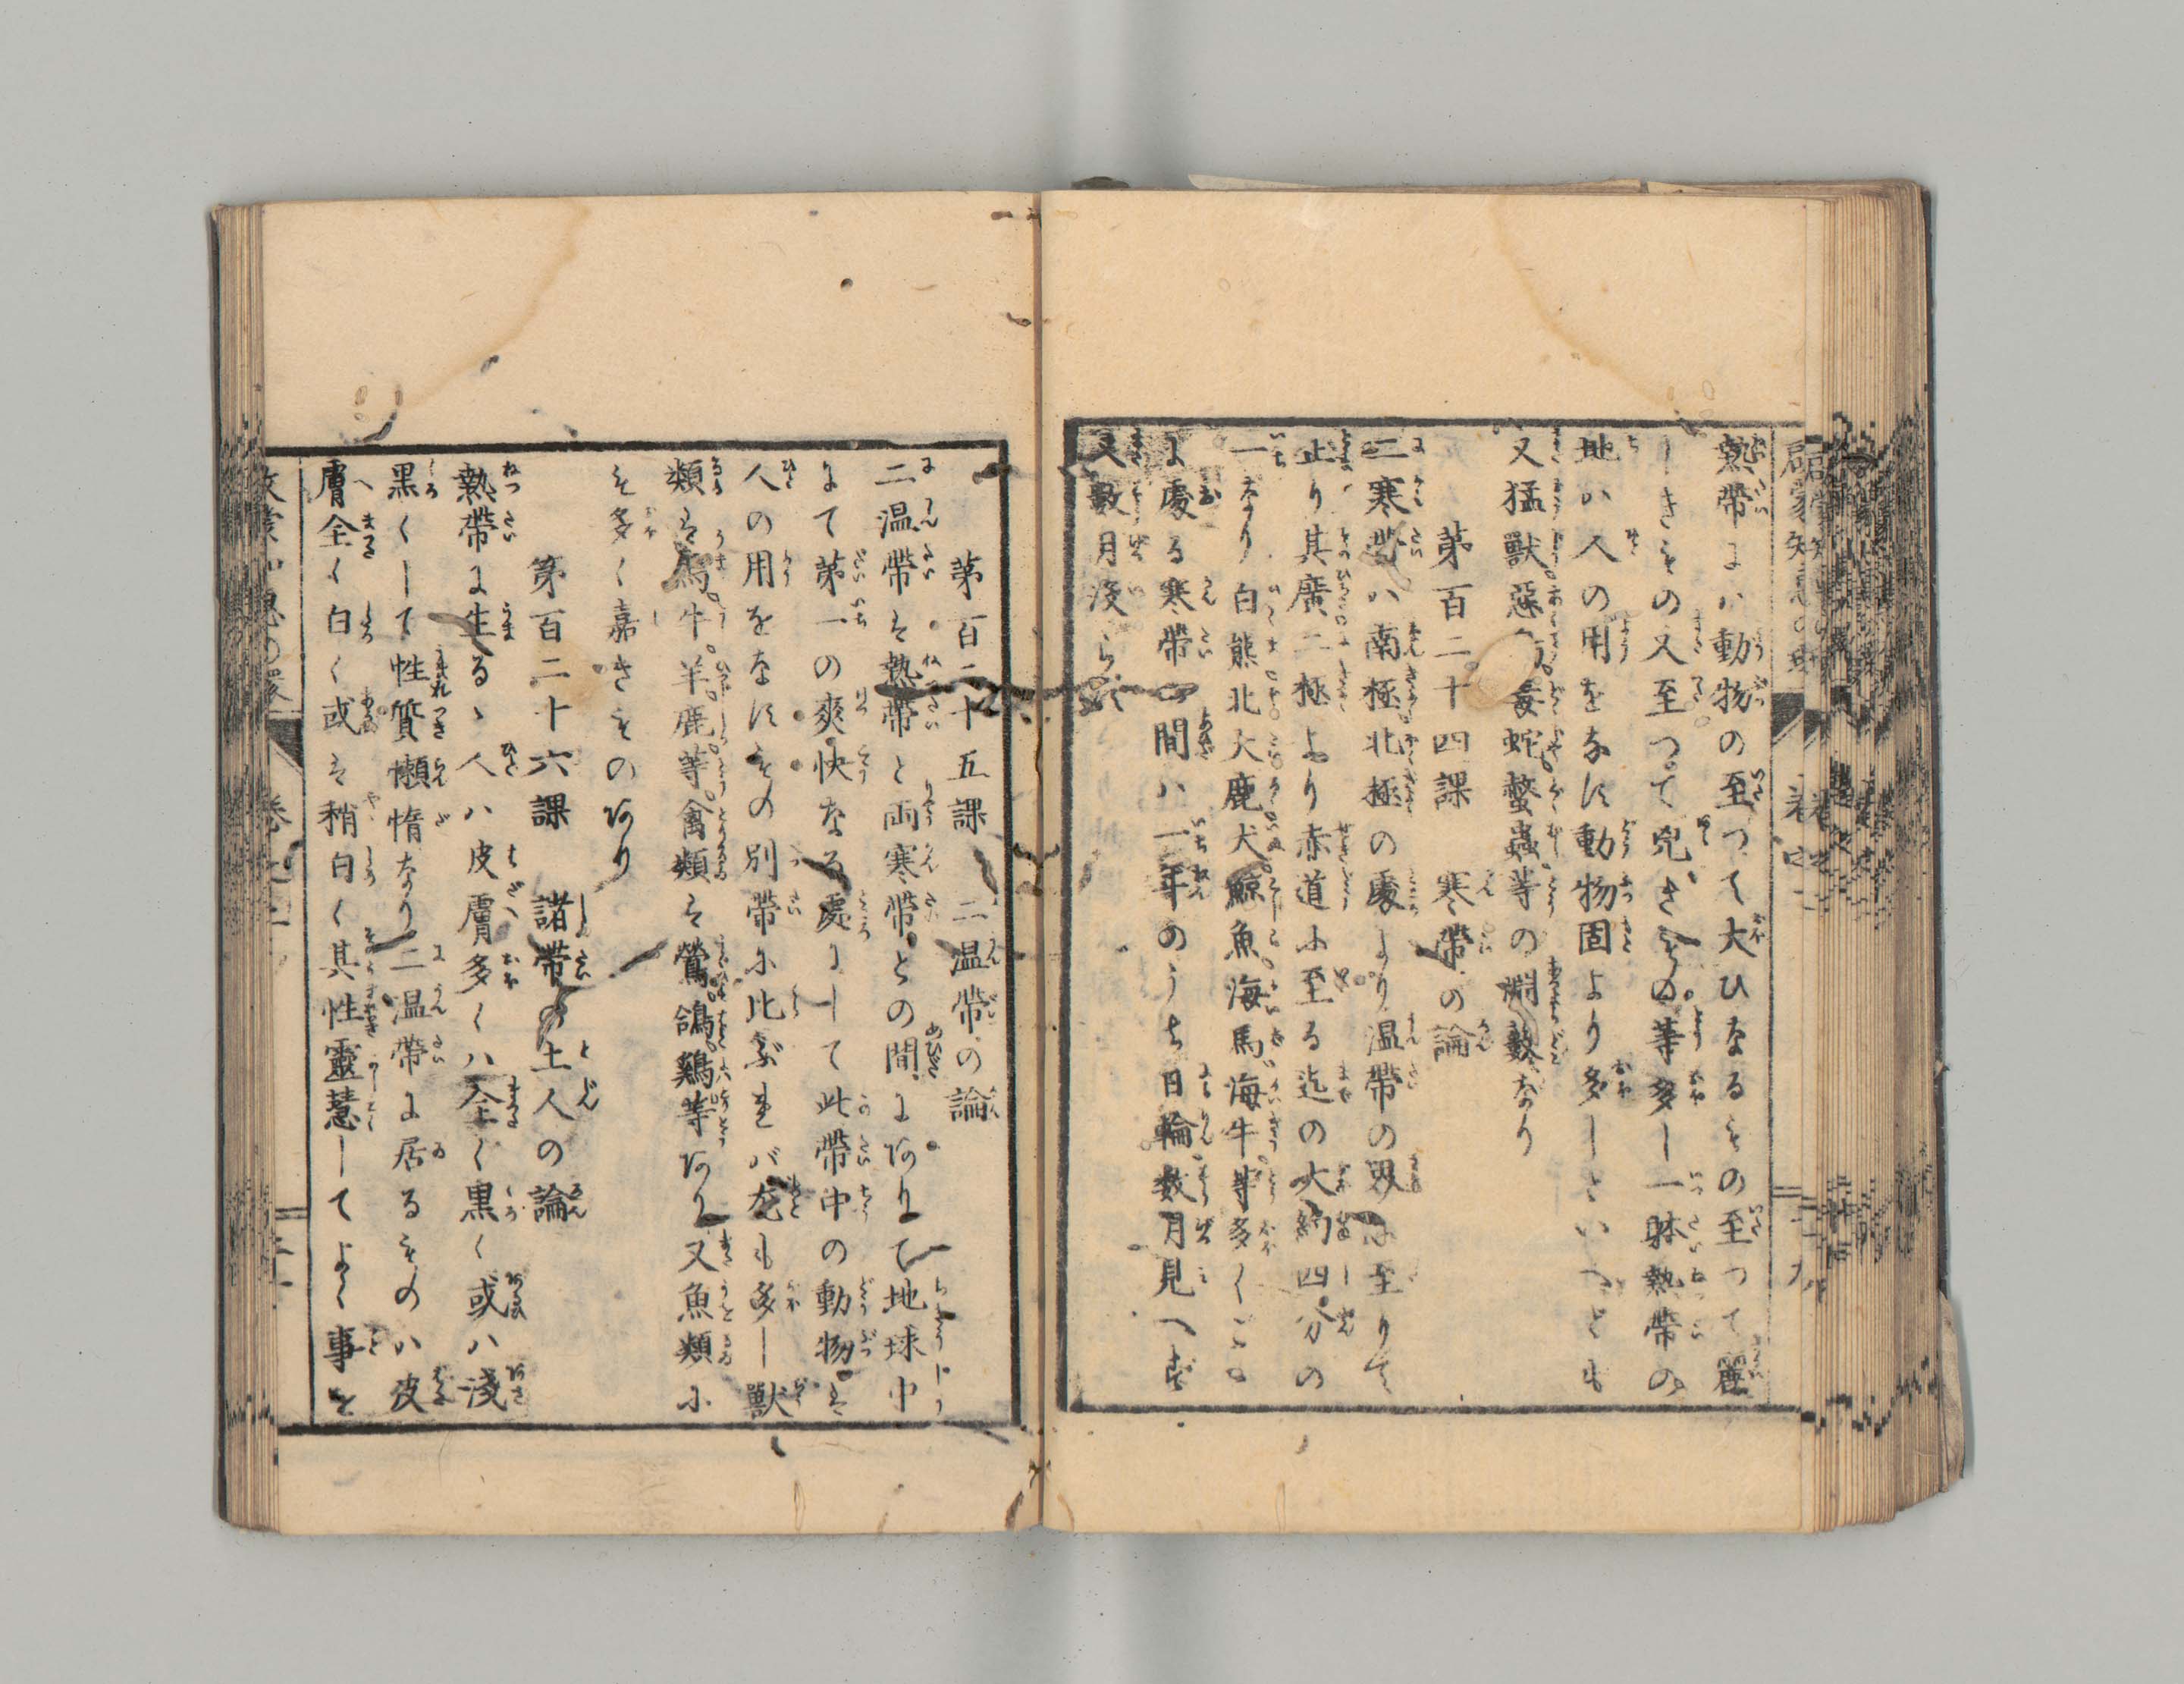 啓蒙知恵の環
熱帶にハ動物の至つて大ひなるもの至つて麗
しきもの又至つて兇きもの等多し一躰熱帶の
地ハ人の用をなす動物固より多しといへども
又猛獸惡 毒蛇螫蟲等の淵藪なり
第百二十四課 寒帶の論
二寒帶ハ南極北極の處より温帶の界に至りて
止り其廣二極より赤道に至る迄の大約四分の
一なり白熊北犬鹿犬鯨魚海馬海牛等多くこゝ
に處る寒帶の間ハ一年のうち日輪数月見へず
又數月沒らず
第百二十五課 二温帶の論
二温帶は熱帶と両寒帶との間にありて地球中
にて第一の爽快なる處にして此帶中の動物は
人の用をなすもの別帶に比ぶればバ尤も多し獸
類は馬牛羊鹿等禽類は鶯鴿鷄等あり又魚類に
も多く嘉きものあり
第百二十六課 諸帶の土人の論
熱帶に生るゝ人ハ皮膚多くハ全く黒く或ハ淺
黒くして性質懶惰なり二温帶に居るものハ皮
膚全く白く或は稍白く其性靈慧してよく事を